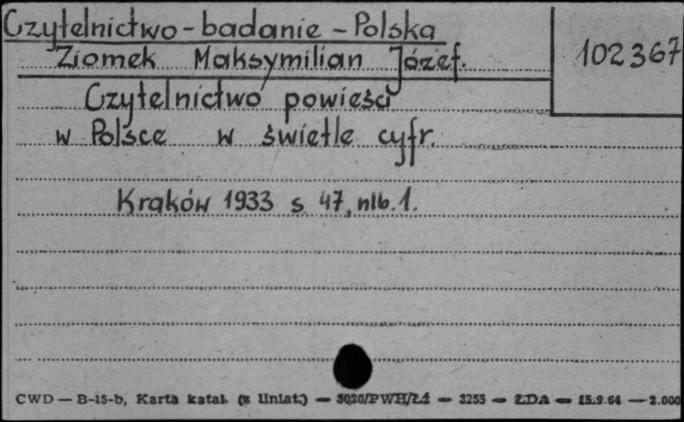 Czytelnictwo-badanie-Polska
102367
Ziomek Maksymilian Józef.
Czytelnictwo powieści
w Polsce w świetle cyfr.
Kraków 1933 s 47, nlb. 1.
CWD — B-15-b, Karta katal. (z liniat.) — 3020/PWH/Łź — 3255 — ŁDA — 15.9.64 — 2.000